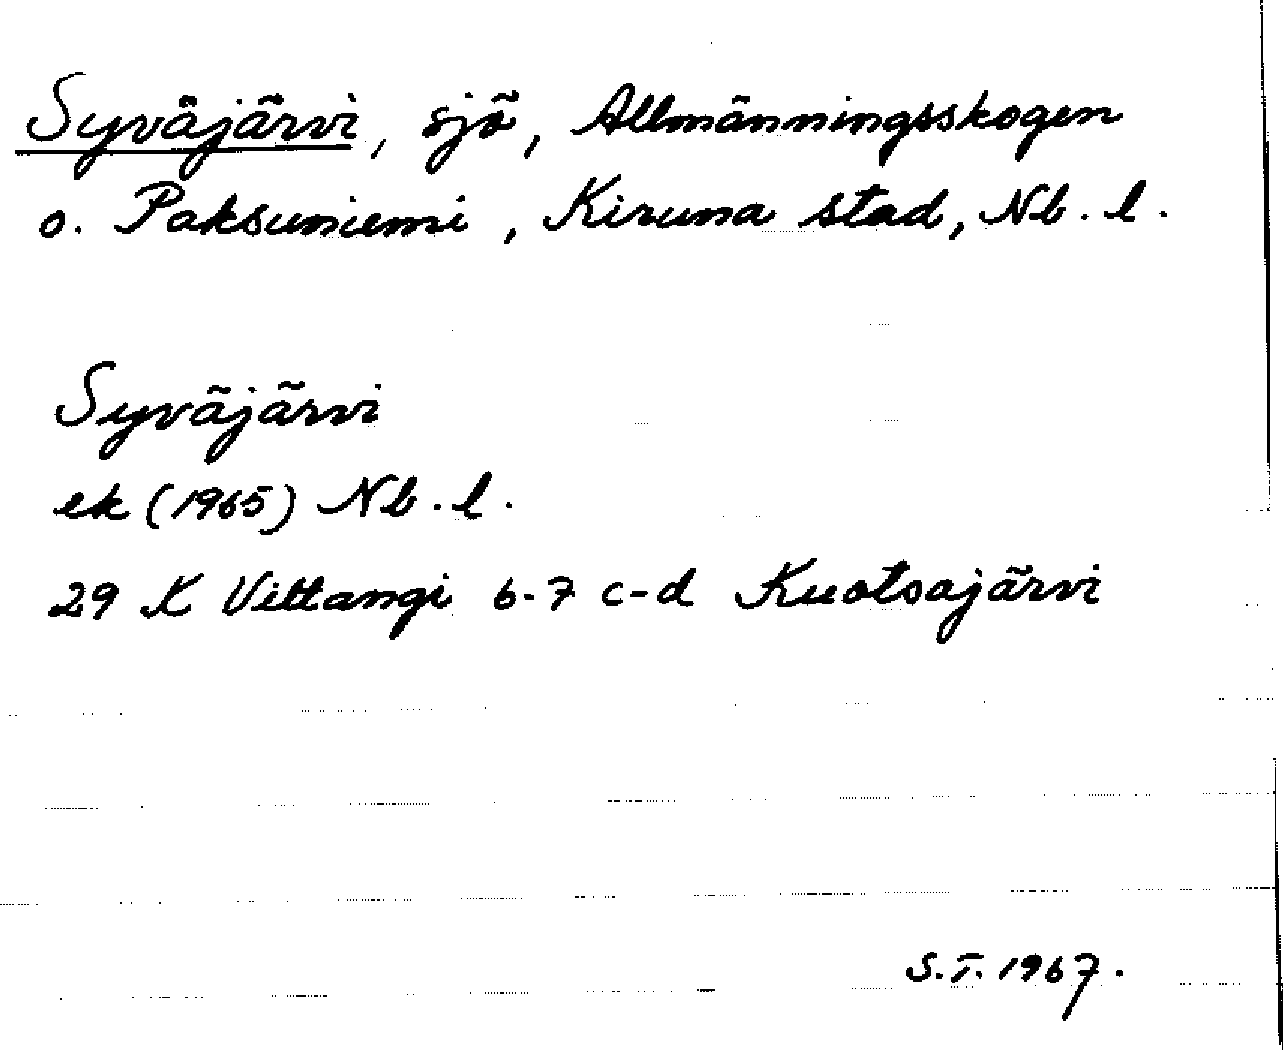 Syväjärvi, sjö, Allmänningsskogen
o. Paksuniemi, Kiruna stad, Nb. l.
Syväjärvi
ek (1965) Nb. l.
29 K Vittangi 6-7 c-d Kuotsajärvi
S.T. 1967.